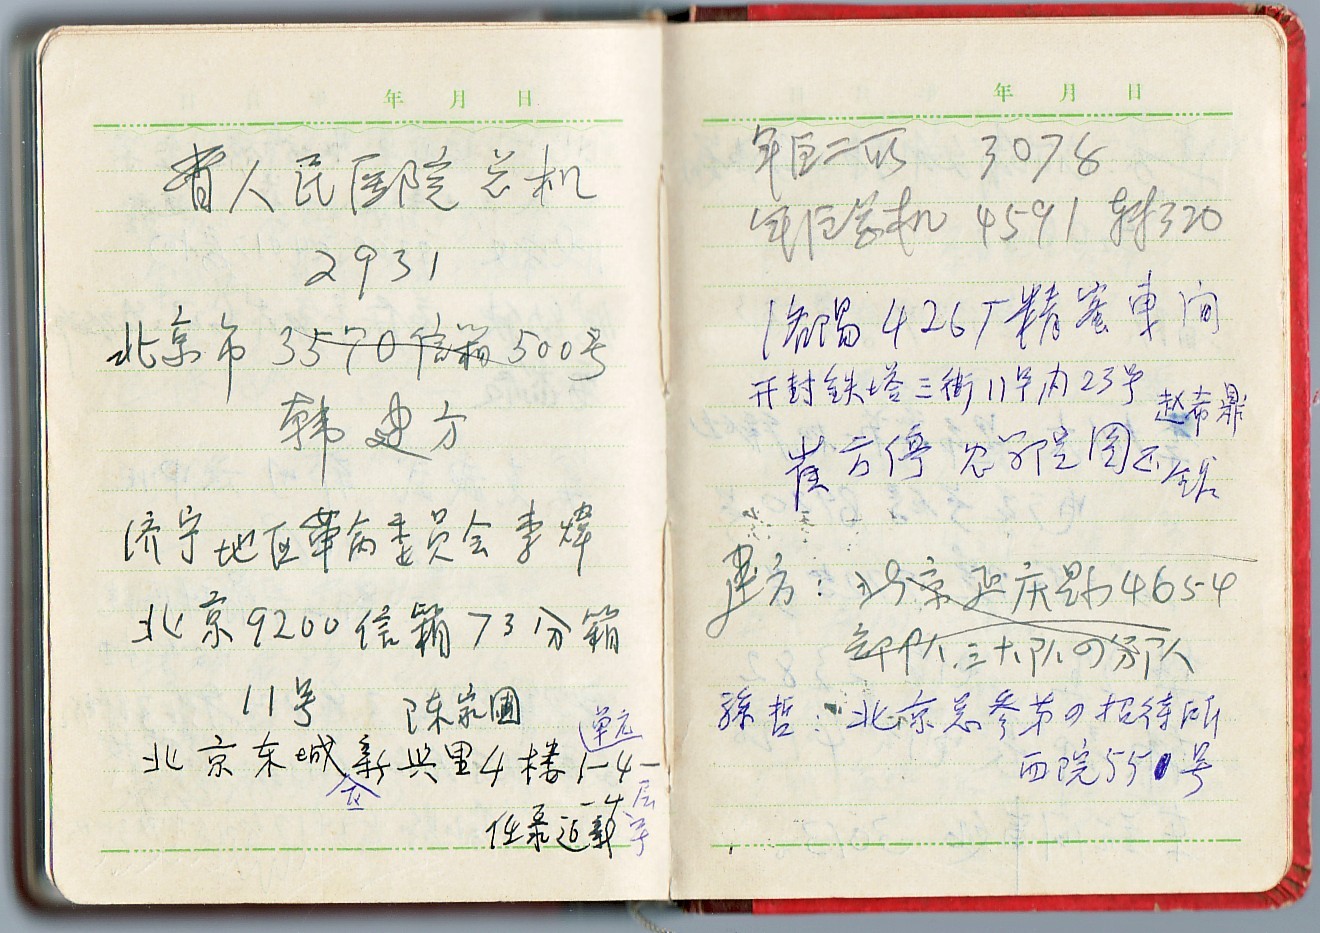 年 月 日
省人民医院 总机
2931
北京市 3570信箱500号
韩建方
济宁地区革命委员会李炜
北京9200信箱73分箱
11号 陈家圃
单元
北京东城新兴里4楼1-4-
区 层
-4
号
年 月 日
军区二所 3078
军区总机 4591 转320
洛阳426厂精密车间
开封铁塔三街11号内23号
赵希鼎
崔方停
建方：北京延庆县4654
部队三大队の分队
孙哲：北京总参第の招待所
西院550号